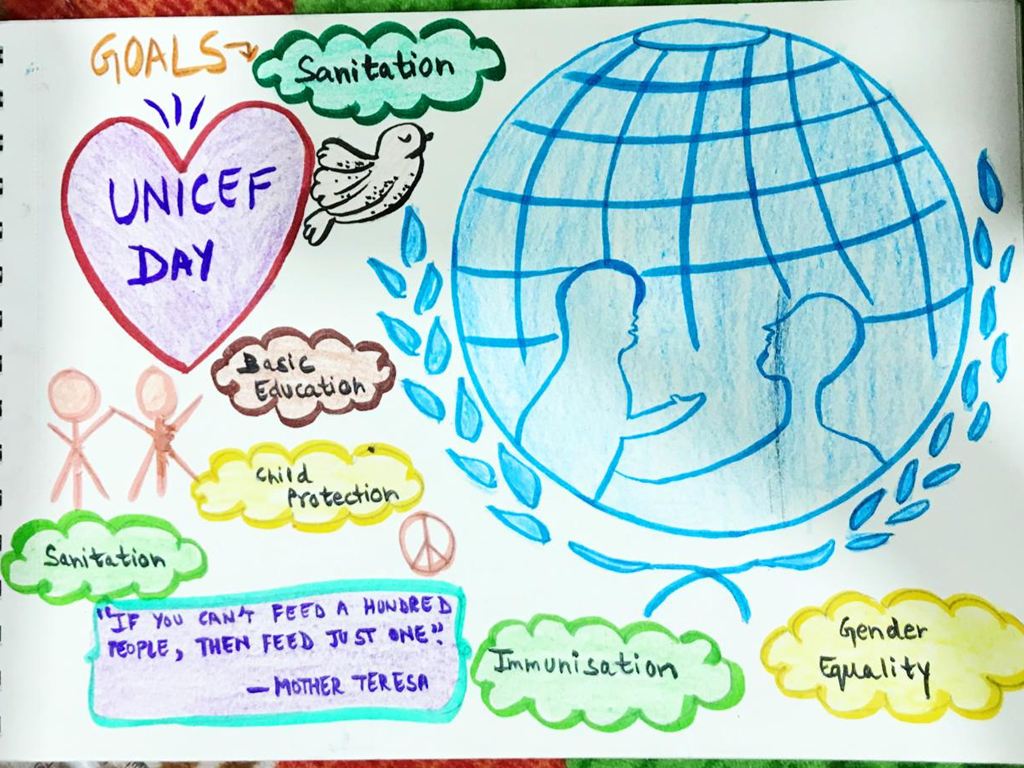 GOALS
Sanitation
UNICEF
DAY
Basic
Education
Child
Protection
Sanitation
"IF YOU CAN'T FEED A HUNDRED
PEOPLE, THEN FEED JUST ONE".
— MOTHER TERESA
Immunisation
Gender
Equality